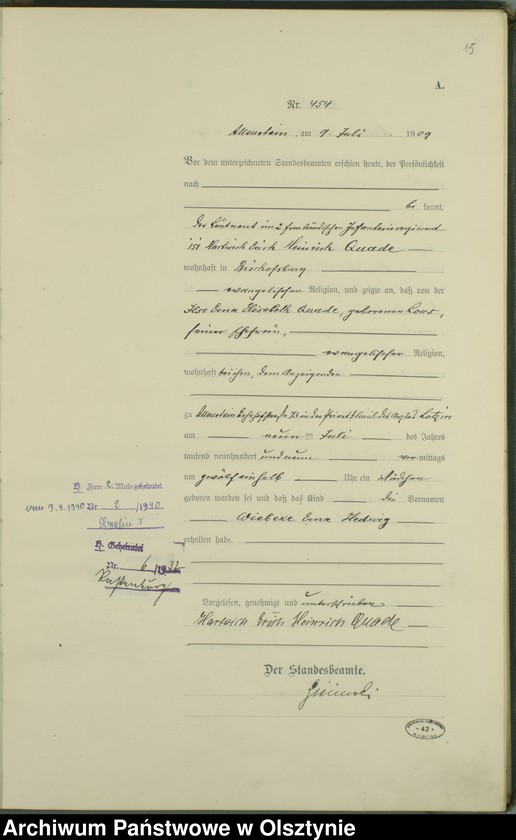 15
A.
Nr. 454
Allenstein, am 9. Juli 1909
Vor dem unterzeichneten Standesbeamten erschien heute, der Persönlichkeit
nach
be kannt,
der Leutnant im 2 Ermländischen Infanterieregiment
151 Hartwich Erich Heinrich Quade
wohnhaft in Bischofsburg
evangelischer Religion, und zeigte an, daß von der
Erna Elisabeth Quade, geborenen
seiner Ehefrau,
evangelischer Religion,
wohnhaft bei ihm, dem Anzeigenden
zu Allenstein Bahnhofstraße 73 in der Privatklinik des Arztes
am neun ten Juli des Jahres
tausend neunhundert und neun vor mittags
um zwölf einhalb Uhr ein Mädchen
geboren worden sei und daß das Kind die Vornamen
Wiebeke Erna Hedwig
erhalten habe.
Vorgelesen, genehmigt und unterschrieben
Hartwich Erich Heinrich Quade
Der Standesbeamte.
H. Zum 2. Male geheiratet
am 9.9.1940 Nr. 2 /1940
H. Geheiratet
Nr. 6 /1932
Rastenburg
42
Archiwum Państwowe w Olsztynie